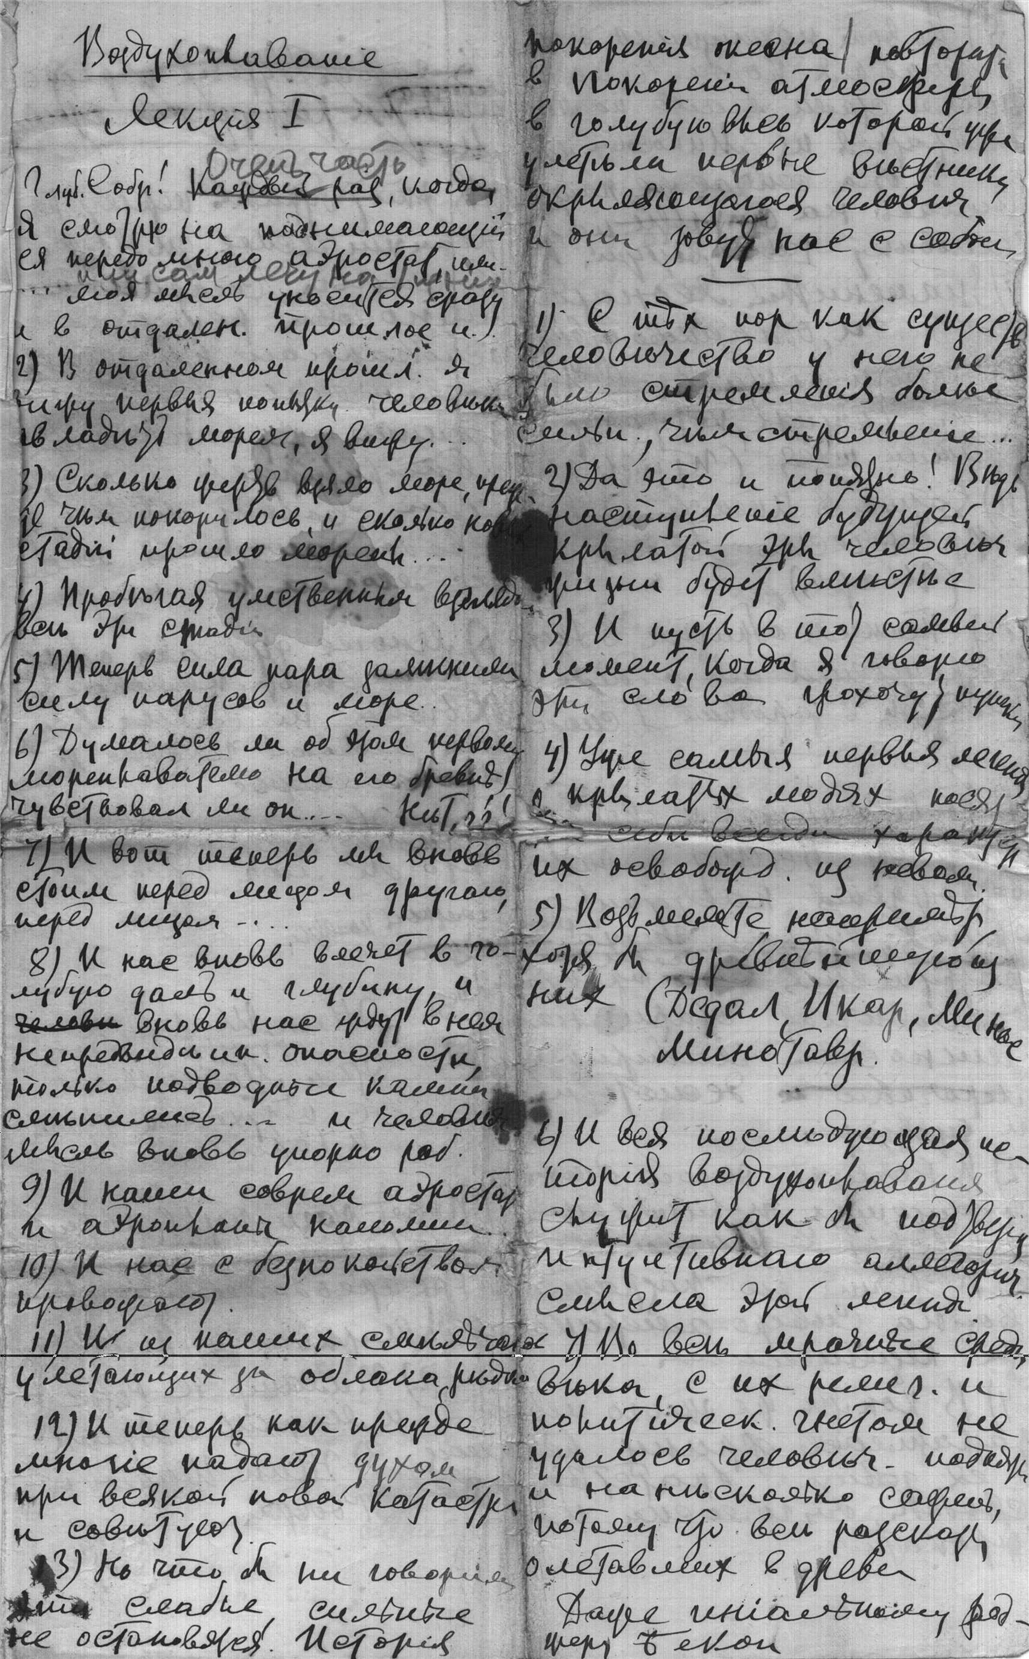 Воздухоплаваніе
Лекція I
Очень часто
Глуб. Собр! Каждый раз, когда
я смотрю на поднимающій
ся передо мною аэростат, или
или сам лечу на
моя мысль уносится сразу
и в отдален. прошлое и
2) В отдаленном прошл. я
вижу первыя попытку человека
овладеть морем, я вижу...
3) Сколько жертв взяло море, преж
де чем покорилось, и сколько
стадій прошло
4) Пробегая умственным взглядом
все эти стадіи
5) Теперь сила пара заменила
силу парусов и море..
6) Думалось ли об этом первому
мореплавателю на его бревне?
Чувствовал ли он.... Нет, о!
7) И вот теперь мы вновь
стоим перед лицом другого,
перед лицом -...
8) И нас вновь влечет в го-
лубую даль и глубину, и
человек вновь нас ждут в нем
непредвиденн. опасности,
только подводные камни
сменились... и человеч
мысль вновь упорно раб.
9) И наши соврем аэростаты
и аэропланы напомин..
10) И нас с безпокойством
провожают.
11) И из наших смельчаков
улетающих за облака, редко
12) И теперь как прежде
многіе падают духом
при всякой новой катастр
и советуют
13) Но что бы ни говорили
эти слабые, сильные
не остановятся. Исторія
покоренія океана повторит
в покореніи атмосферы,
в голубую высь которой уже
улетели первые вестники
окрыляющагося человека
и они зовут нас с собою
1) С тех пор как существ
человечество у него не
было стремленія более
сильн., чем стремленіе...
2) Да это и понятно! Ведь
наступленіе будущей
крылатой эры человеч
жизни будет вместе
3) И пусть в тот самый
момент, когда я говорю
эти слова грохочут пушки
4) Уже самыя первыя легенды
о крылатых людях носят
в себе всегда характер
их освобожд. из неволи.
5) Возьмемте например
хотя бы древнейшую из
них (Дедал, Икар, Минос
Минотавр.
6) И вся последующая ис-
торія воздухоплаванія
служит как бы подтвержд
интуитивнаго аллегорич.
смысла этой легенды
7) Во все мрачные средн
века, с их религ. и
политическ. гнетом не
удалось человеч. подняться
и на несколько сажень,
потому что все разсказы
о летавших в древн
Даже геніальному Род-
жеру Бекон